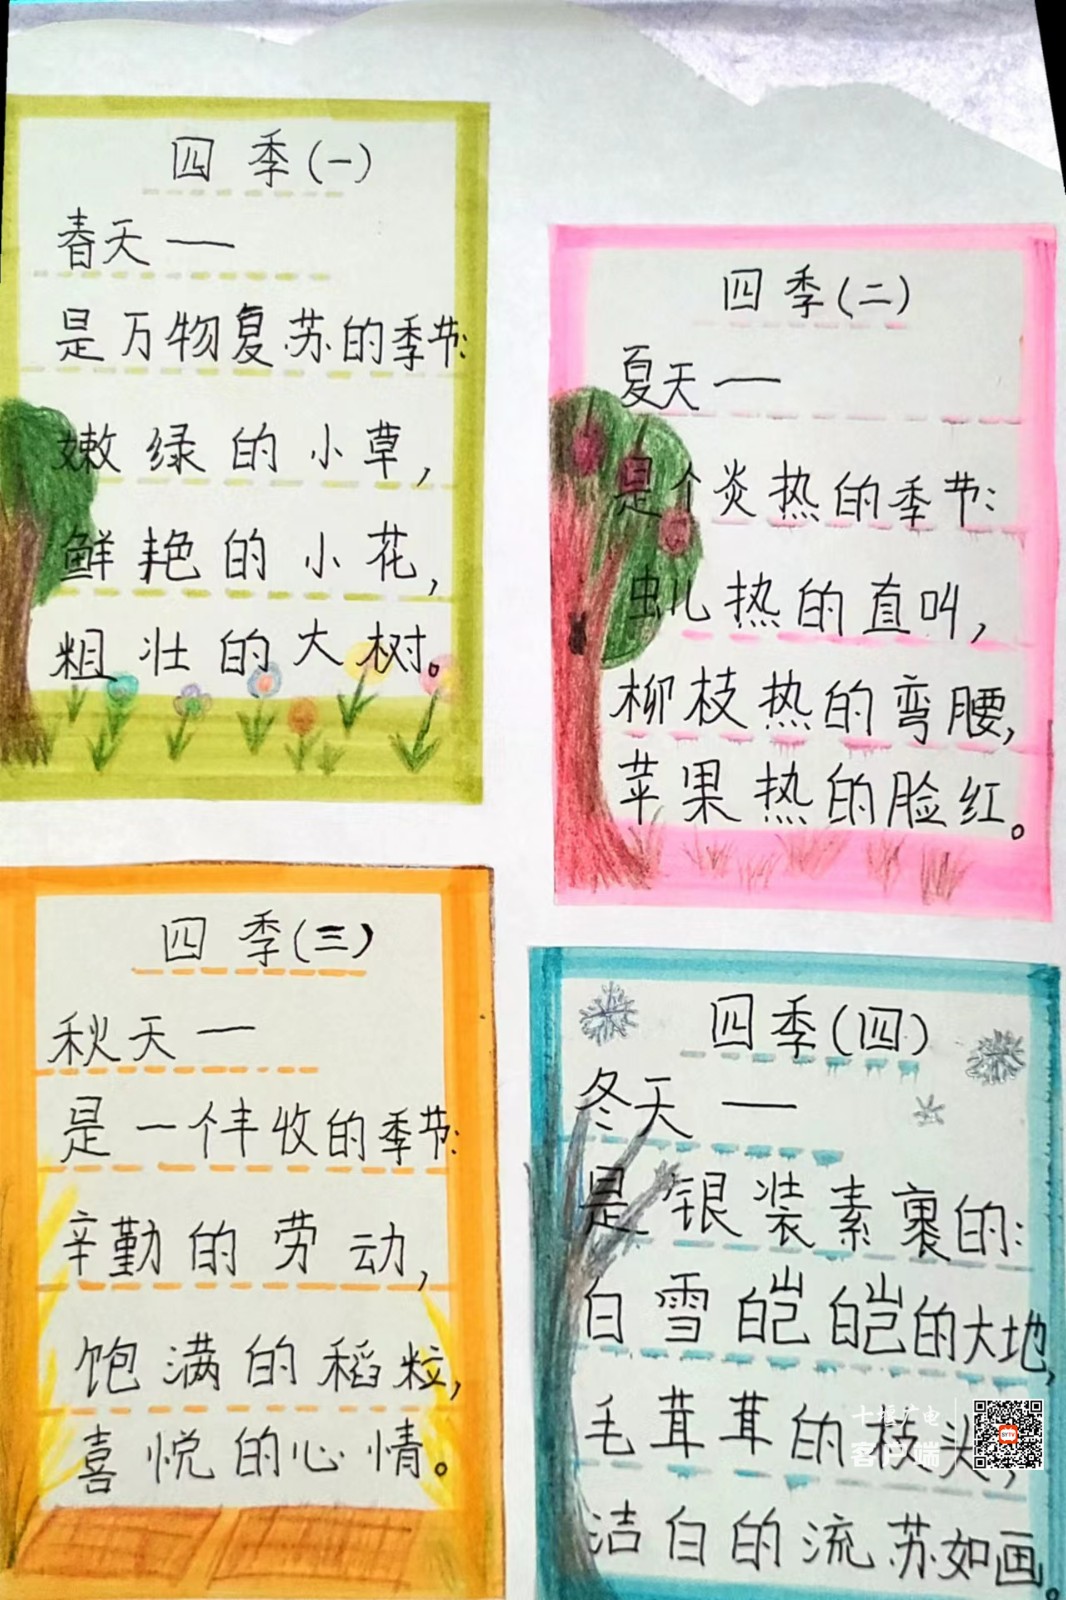 四季(一)
春天——
是万物复苏的季节:
嫩绿的小草,
鲜艳的小花,
粗壮的大树。
四季(二)
夏天——
是个炎热的季节:
虫儿热的直叫,
柳枝热的弯腰,
苹果热的脸红。
四季(三)
秋天——
是一个丰收的季节:
辛勤的劳动,
饱满的稻粒,
喜悦的心情。
四季(四)
冬天——
是银装素裹的:
白雪皑皑的大地,
毛茸茸的枝头,
洁白的流苏如画。
十堰广电
客户端